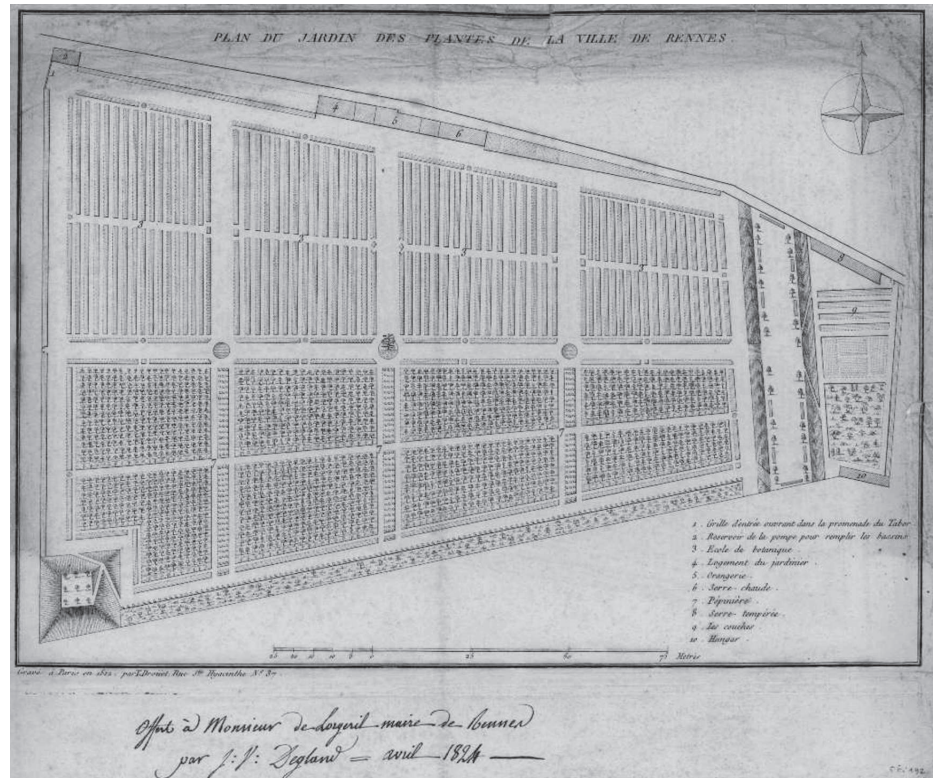 PLAN DU JARDIN DES PLANTES DE LA VILLE DE RENNES.
2
1
4
5
6
3
3
3
3
8
9
7
7
7
10
1 . Grille d'entrée ouvrant dans la promenade du Tabor
2 . Reservoir de la pompe pour remplir les bassins
3 . Ecole de botanique .
4 . Logement du jardinier .
5 . Orangerie .
6 . Serre-chaude .
7 . Pépinière .
8 . Serre-tempérée .
9 . Les couches
10 . Hangar .
25 20 15 10 5 0 25 50 75 Metres
Gravé à Paris en par T. Drouet Rue Ste. Hyacinthe No. 37 .
Offert à Monsieur de Lorgeril maire de Rennes
par J: V: Degland = avril 1824